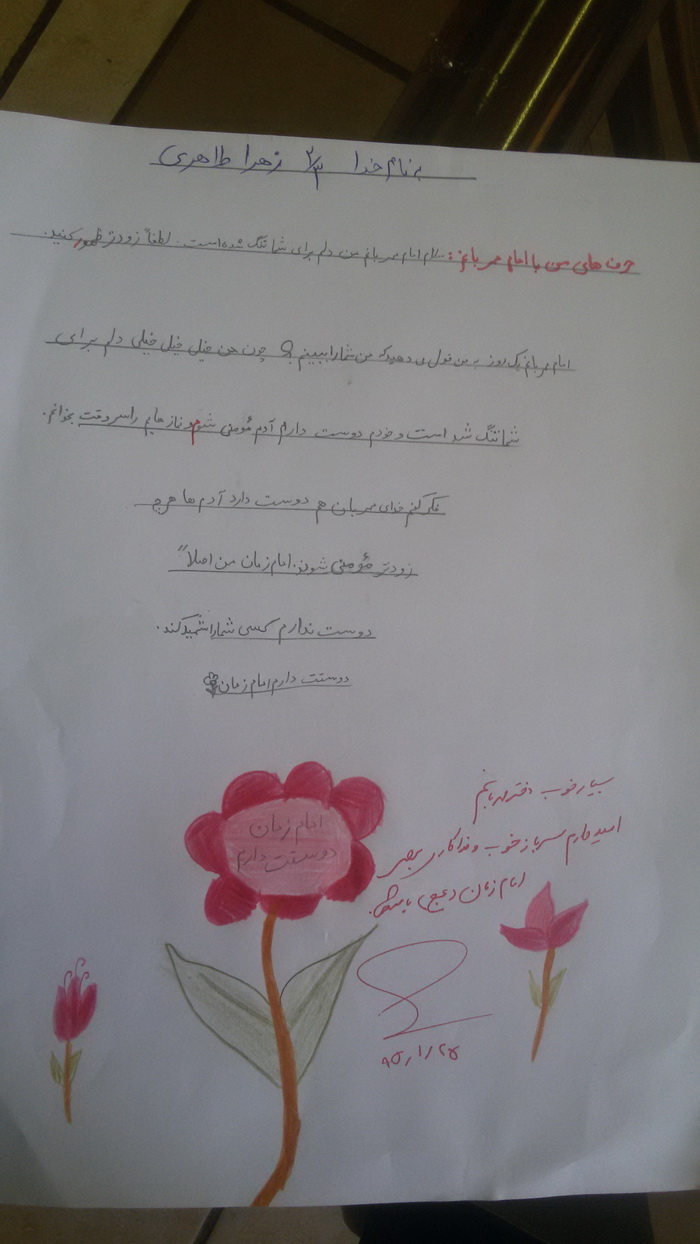 به نام خدا ۲/۳ زهرا طاهری
حرف های من با امام مهربانم: سلام امام مهربانم من دلم برای شما تنگ شده است. لطفاً زودتر ظهور کنید.
امام مهربانم یک روز به من قول می دهید که من شما را ببینم؟ چون من خیلی خیلی خیلی دلم برای
شما تنگ شده است و خودم دوست دارم آدم مؤمنی شوم و نماز هایم را سر وقت بخوانم.
فکر کنم خدای مهربان هم دوست دارد آدم ها هرچه
زودتر مؤمنی شوند. امام زمان من اصلاً
دوست ندارم کسی شما را شهید کند.
دوستت دارم امام زمان
امام زمان
دوستت دارم
بسیار خوب دختر مهربانم
امیدوارم سرباز خوب و فداکاری برای
امام زمان (عج) باشی.
۹۵/۱/۲۵